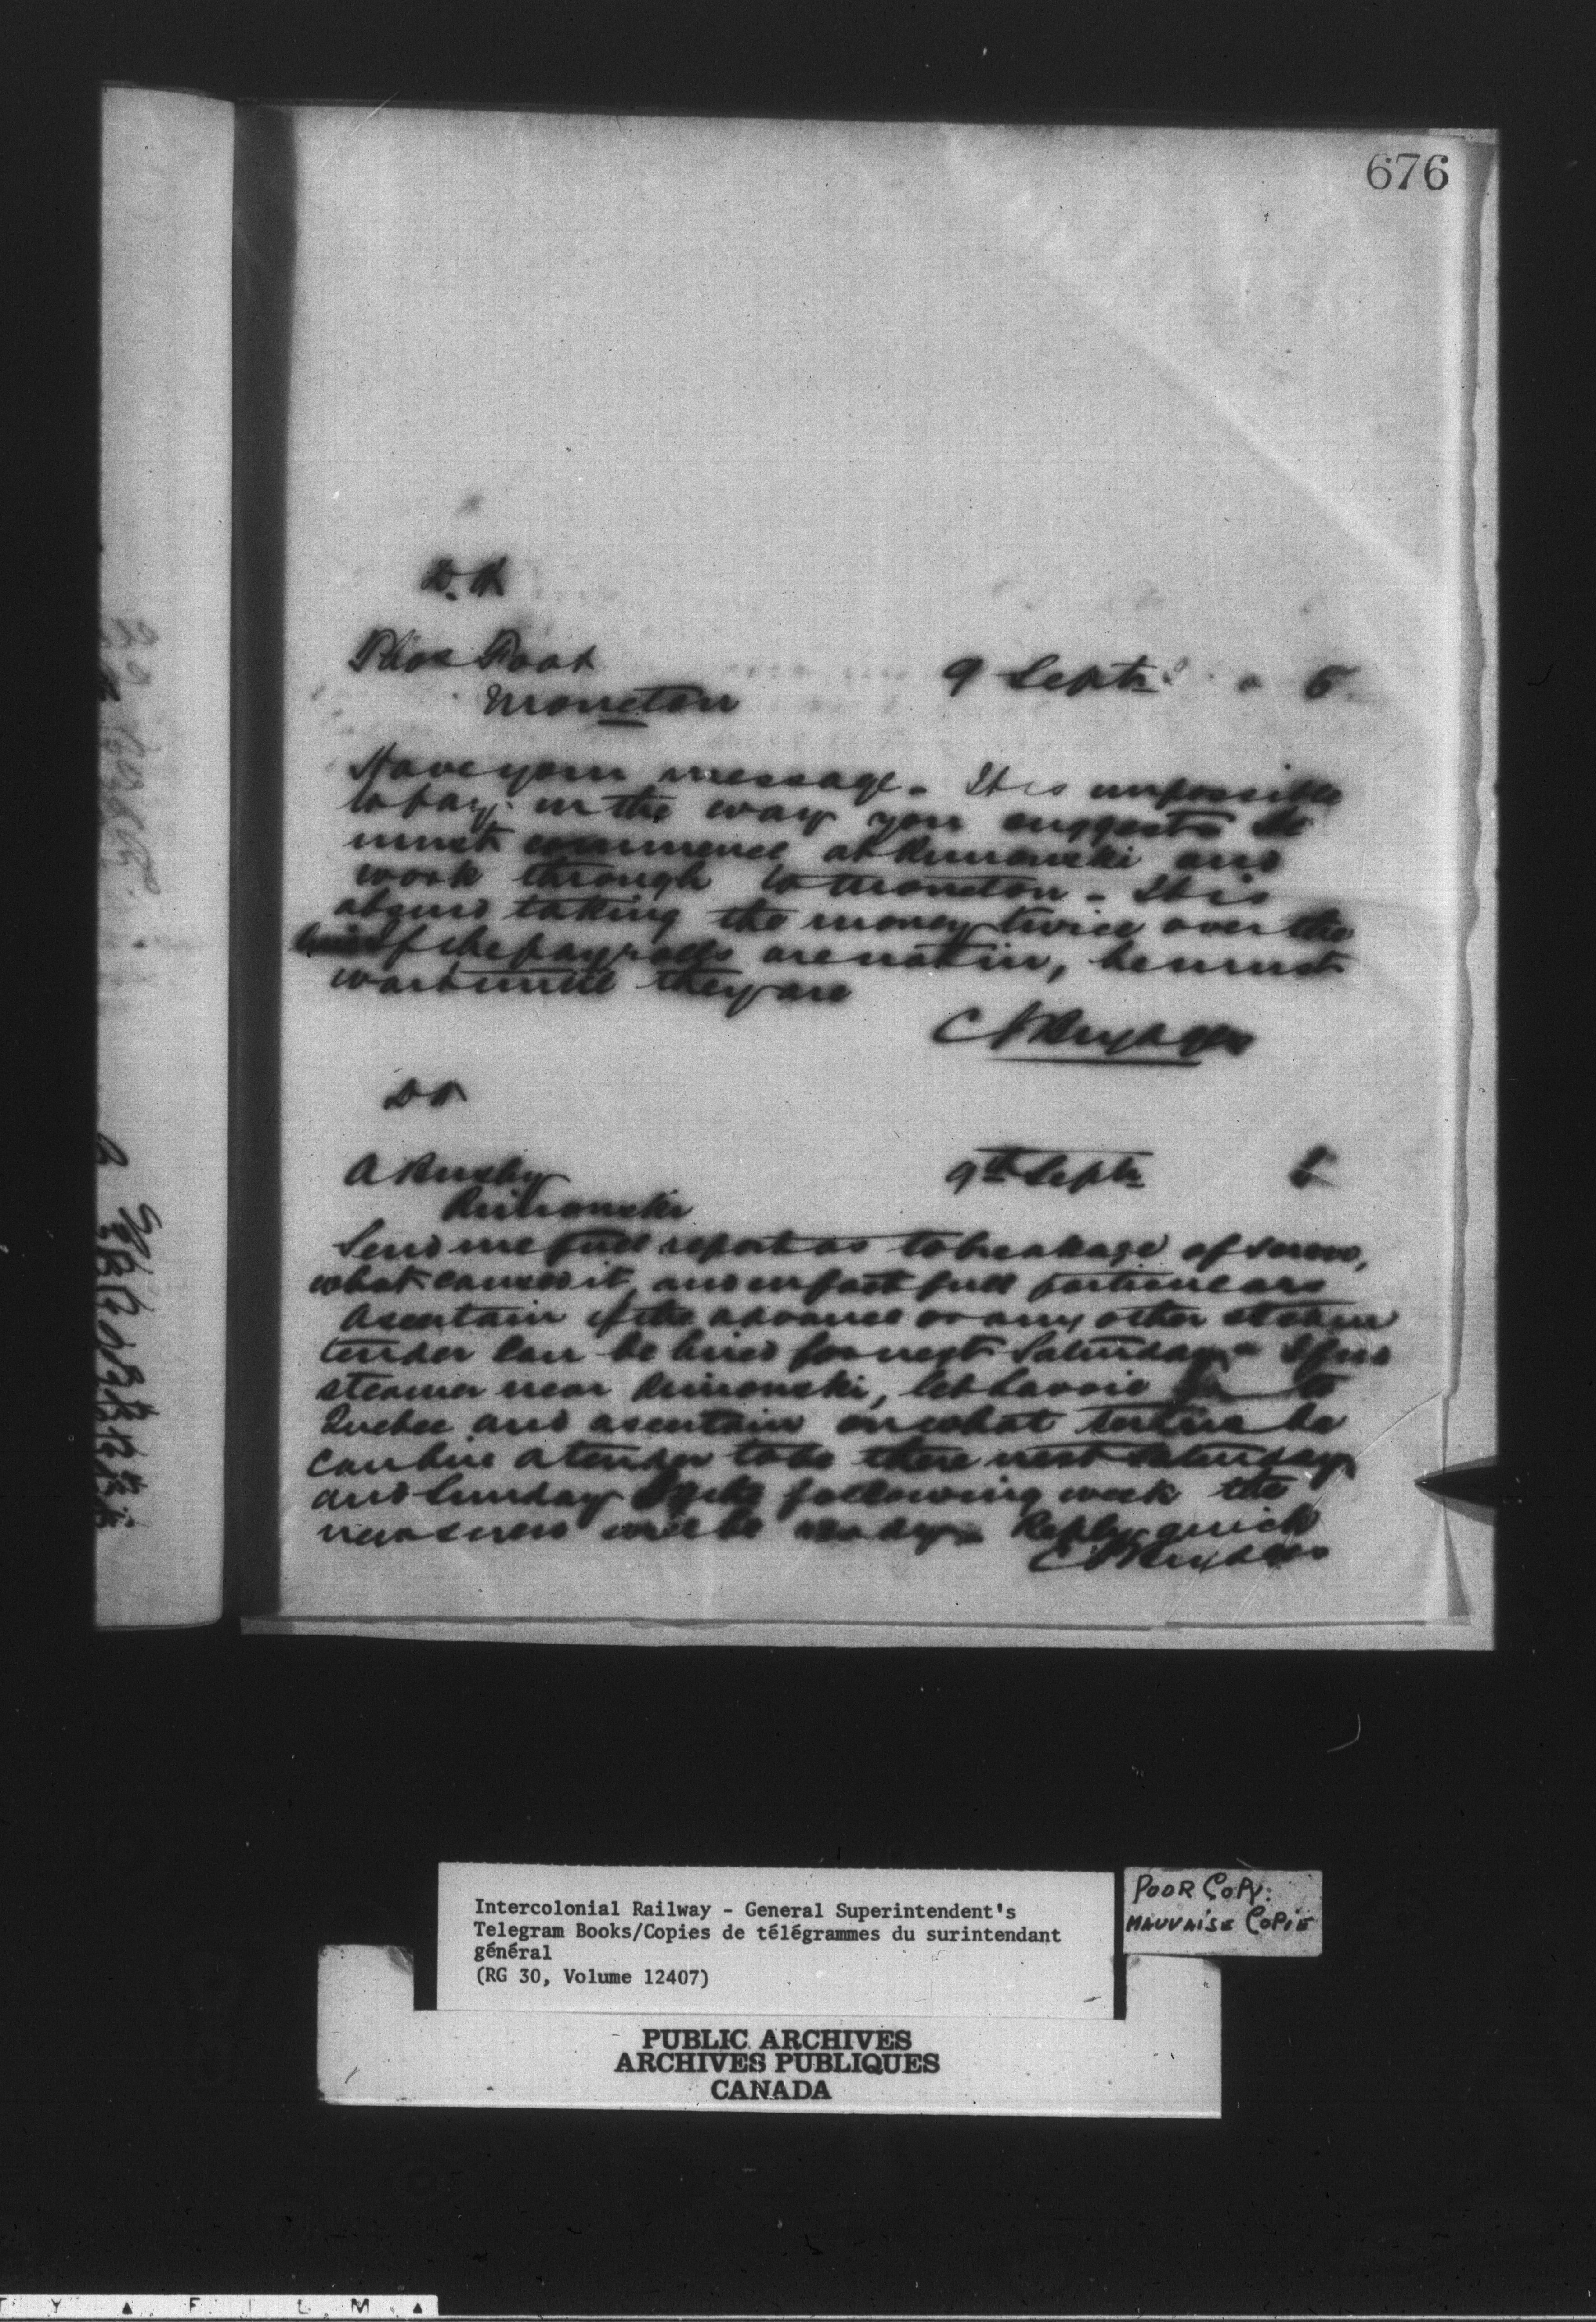 676
D. H
Thos Foot
Moncton
9 Septr 5
Have your message. It is impossible
to pay in the way you suggest. He
must commence at Rimouski and
work through to Moncton. It is
absurd taking the money twice over the
line If the pay rolls are not in, he must
wait until they are
C J Brydges
D H
A Busby
Rimouski
9th Septr 5
Send me full report as to breakage of screw,
what caused it, and in fact full particulars
Ascertain if the advance or any other steam
tender can be hired for next Saturday. If no
steamer near Rimouski, let Lavoie to
Quebec and ascertain on what terms he
can hire a tender to be there next Saturday
and Sunday following week the
new screw will be ready. Reply quick
C J Brydges
Intercolonial Railway - General Superintendent's
Telegram Books/Copies de télégrammes du surintendant
général
(RG 30, Volume 12407)
POOR COPY.
MAUVAISE COPIE
PUBLIC ARCHIVES
ARCHIVES PUBLIQUES
CANADA
T Y ▲ F I L M ▲